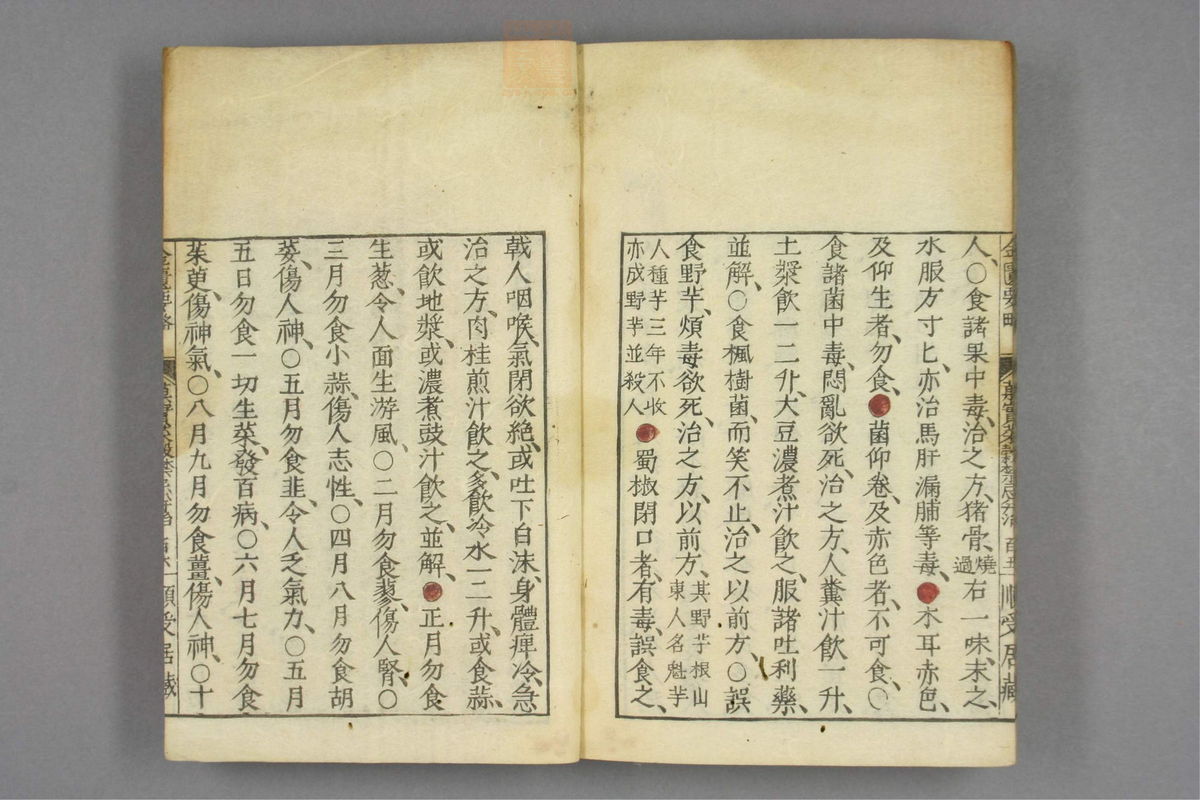 金匱要略
順受居藏
人、〇食諸果中毒、治之方、猪骨燒過右一味、末之、
水服方寸匕、亦治馬肝漏脯等毒、●木耳赤色、
及仰生者、勿食、●菌仰卷、及赤色者、不可食、〇
食諸菌中毒、悶亂欲死、治之方、人糞汁飲一升、
土漿飲一二升、大豆濃煮汁飲之、服諸吐利藥、
並解、〇食楓樹菌、而笑不止、治之以前方、〇誤
食野芋、煩毒欲死、治之方、以前方、其野芋根山東人名魁芋
人種芋三年不收亦成野芋並殺人●蜀椒閉口者、有毒、誤食之、
戟人咽喉、氣閉欲絶、或吐下白沫、身體痺冷、急
治之方、肉桂煎汁飲之、多飲冷水一二升、或食蒜、
或飲地漿、或濃煮豉汁飲之、並解、●正月勿食
生葱、令人面生游風、〇二月勿食蓼、傷人腎、〇
三月勿食小蒜、傷人志性、〇四月八月勿食胡
荽、傷人神、〇五月勿食韭、令人乏氣力、〇五月
五日勿食一切生菜、發百病、〇六月七月勿食
茱萸、傷神氣、〇八月九月勿食薑、傷人神、〇十
金匱要略
順受居藏